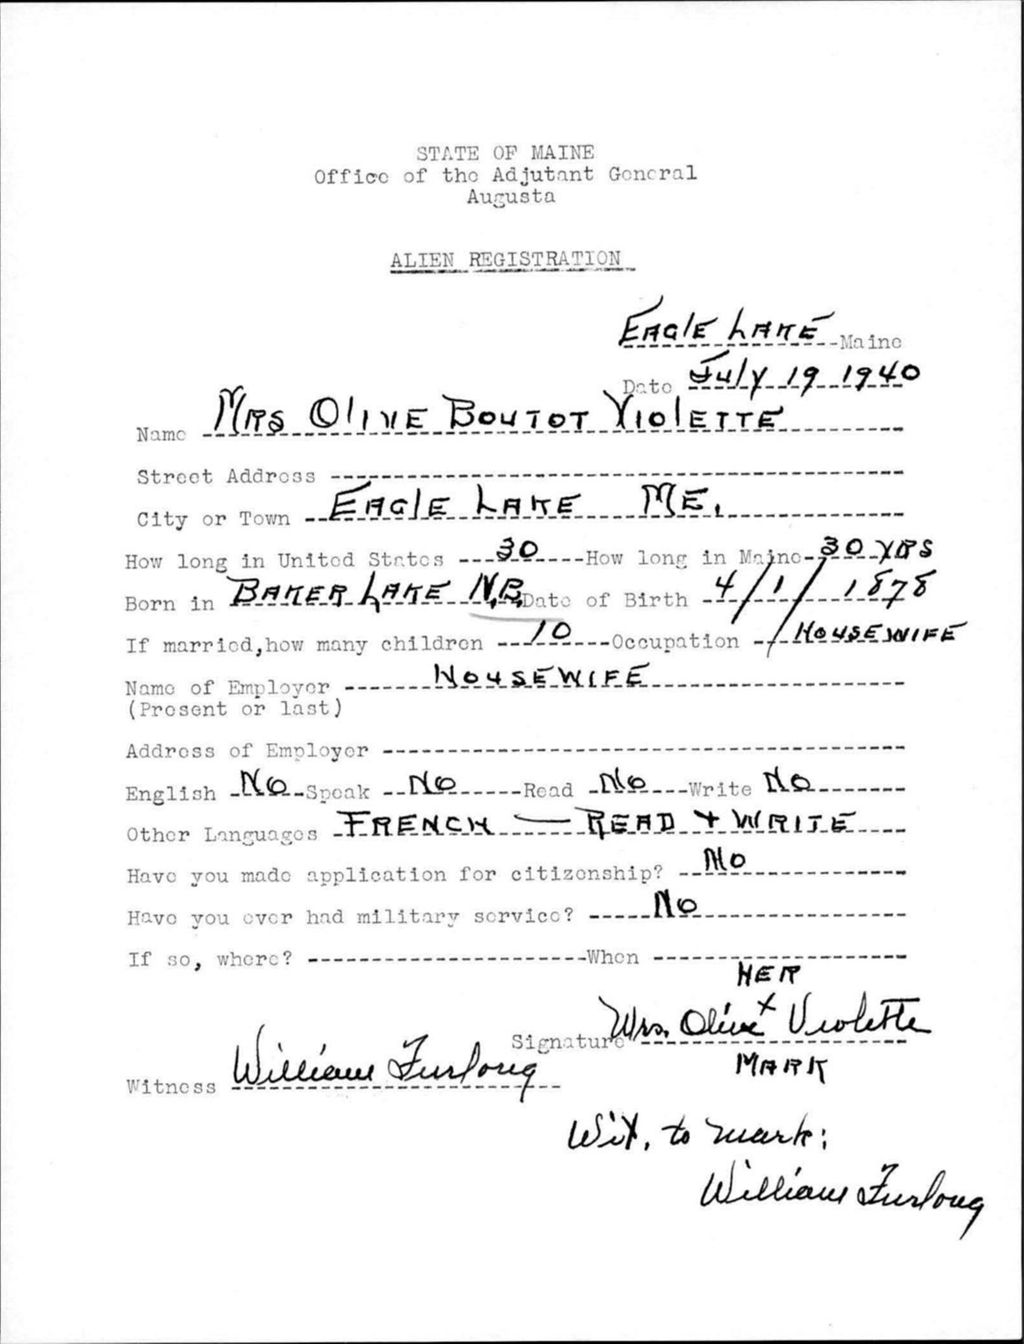 STATE OF MAINE
Office of the Adjutant General
Augusta
ALIEN REGISTRATION
EAGLE LAKE Maine
Date July 19 1940
Name MRS OLIVE BOUTOT VIOLETTE
Street Address
City or Town EAGLE LAKE ME.
How long in United States 30 How long in Maine 30 YRS
Born in BAKER LAKE N.B. Date of Birth 4/1/1878
If married, how many children 10 Occupation HOUSEWIFE
Name of Employer HOUSEWIFE
(Present or last)
Address of Employer
English No Speak No Read No Write No
Other Languages FRENCH — READ + WRITE
Have you made application for citizenship? No
Have you ever had military service? No
If so, where? When
HER
Signature Mrs. Olive x Violette
MARK
Witness William Furlong
Wit. to mark:
William Furlong